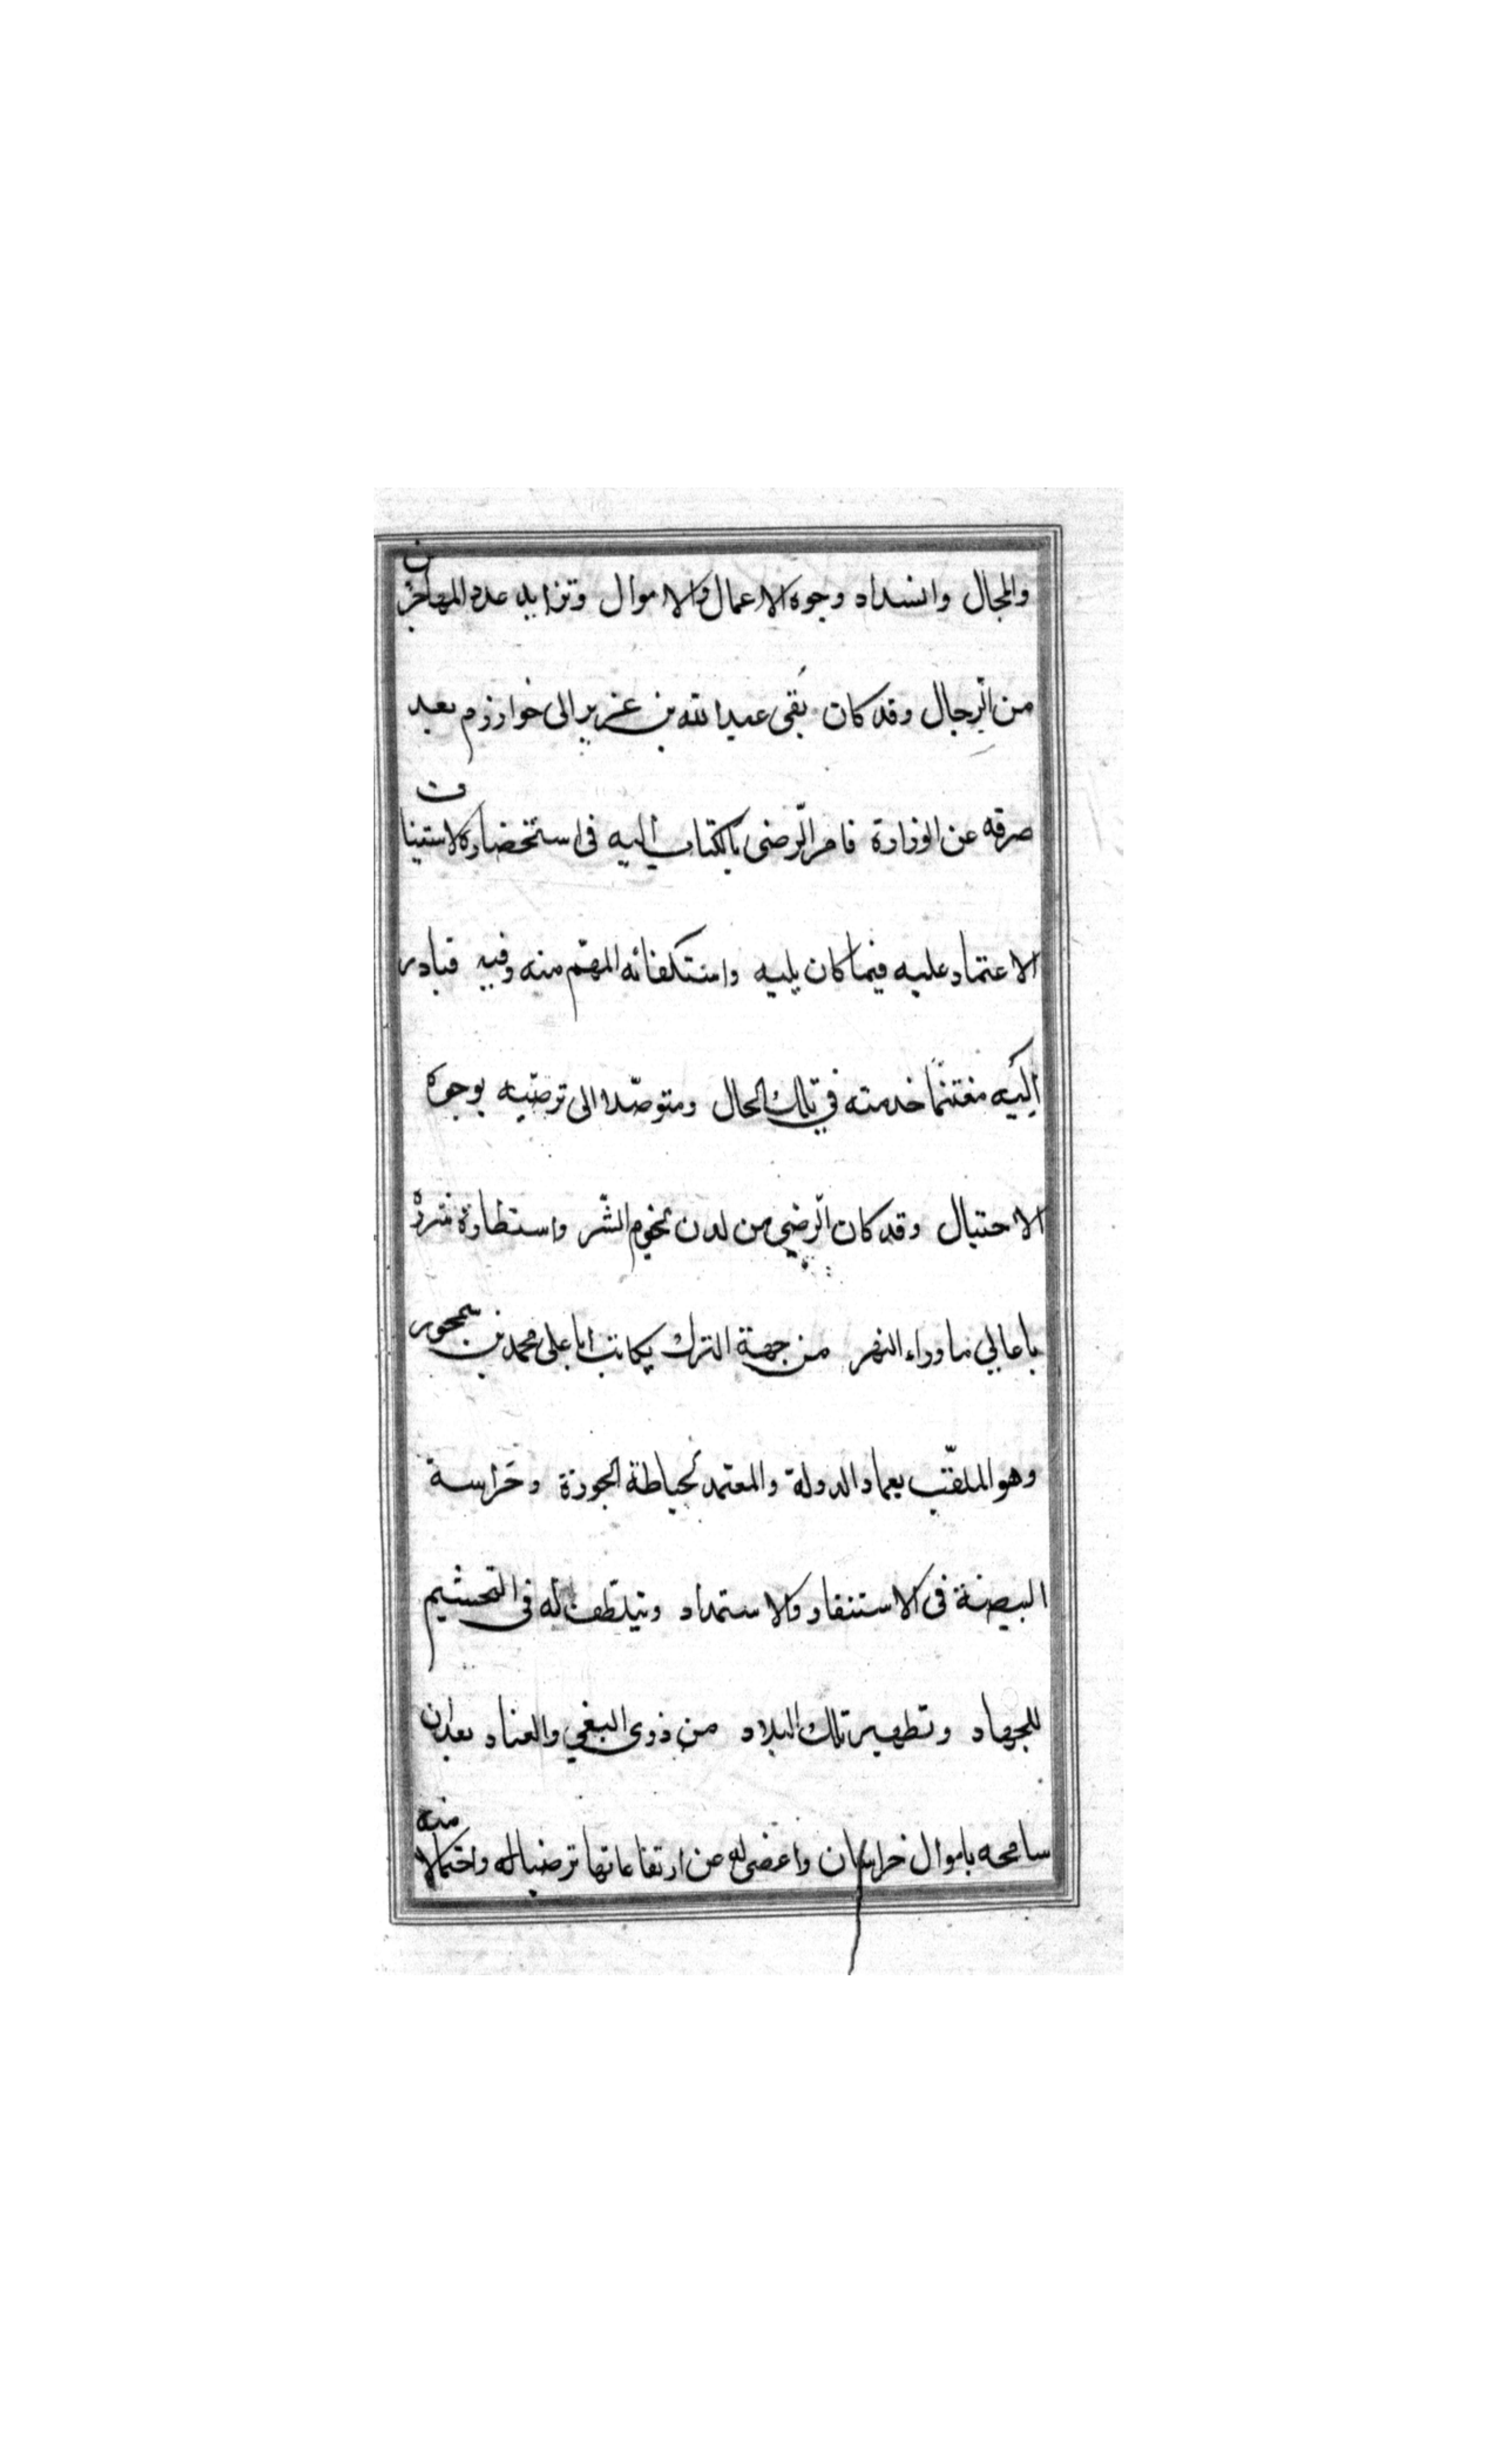 والمجال وانسداد وجوه الاعمال والاموال وتزايد عدد المهاجرين
من الرجال وقد كان نفى عبدالله بن عزيز الى خوارزم بعد
صرفه عن الوزارة فامر الرضى بالكتاب اليه فى استحضاره لاستيناف
الاعتماد عليه فيما كان يليه واستكفائه المهم منه وفيه فبادر
اليه مغتنما خدمته في تلك الحال ومتوصلا الى ترضيه بوجوه
الاحتيال وقد كان الرضي من لدن نجوم الشر واستطارة شرره
باعالي ما وراء النهر من جهة الترك يكاتب ابا على محمد بن سمجور
وهو الملقب بعماد الدولة والمعتمد لحياطة الحوزة وحراسة
البيضة فى الاستنفار والاستمداد ويتلطف له فى التجشيم
للجهاد وتطهير تلك البلاد من ذوى البغي والعناد بعد ان
سامحه باموال خراسان واغضى له عن ارتفاعاتها ترضيا له واحتمالا منه